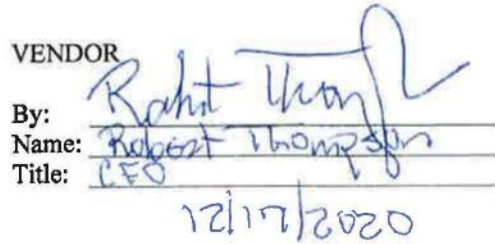 VENDOR
By: Robert Thompson
Name: Robert Thompson
Title: CEO
12/17/2020